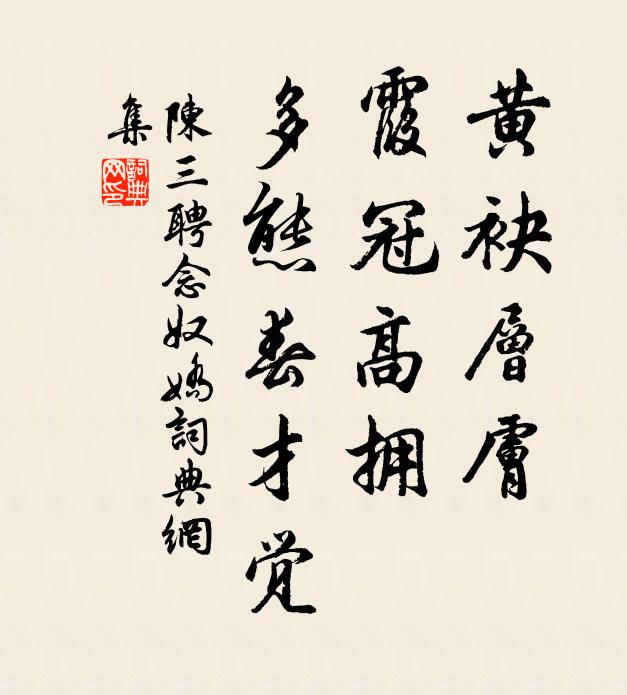 黄袂層膚
霞冠高拥
多態春才觉
陳三聘念奴嬌詞典網
集
詞典网印